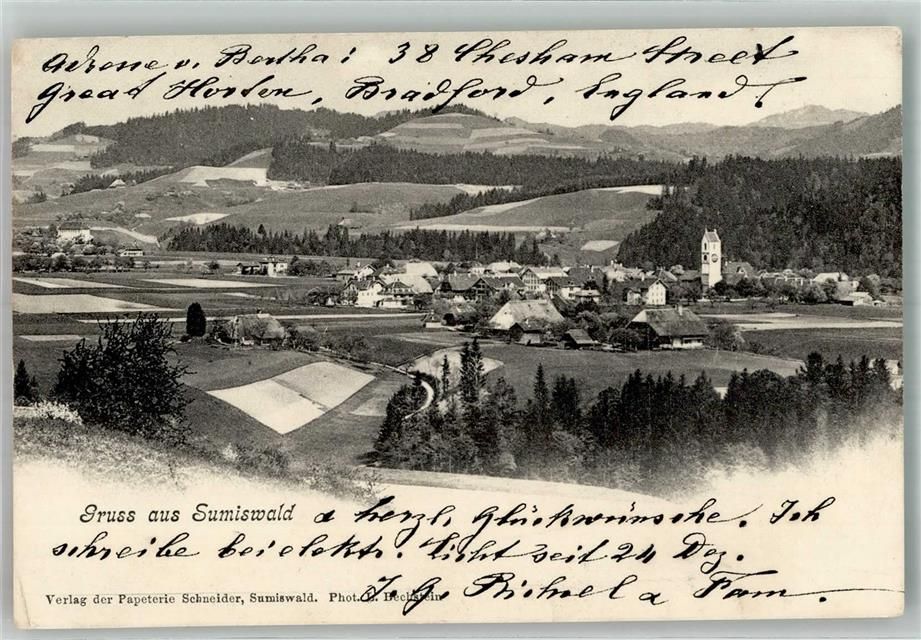 Adresse v. Bertha: 38 Chesham Street
Great Horton, Bradford, England!
Gruss aus Sumiswald & herzl. Glückwünsche. Ich
schreibe bei elektr. Licht seit 24 Dez.
Verlag der Papeterie Schneider, Sumiswald. Phot. Bechstein